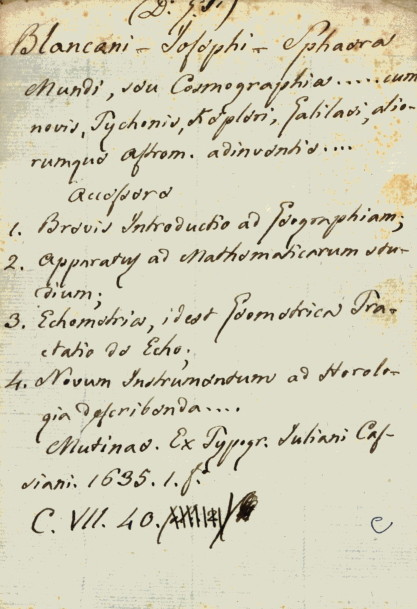 (D. G. S.)
Blancani - Josephi - Sphaera
Mundi, seu Cosmographia ..... cum
novis, Tychonis, Kepleri, Galilaei, alio-
rumque Astrom. adinventis ....
Accessere
1. Brevis Introductio ad Geographiam;
2. Apparatus ad Mathematicarum stu-
dium;
3. Echometria, idest Geometrica Tra-
ctatio de Echo;
4. Novum Instrumentum ad Horolo-
gia describenda ....
Mutinae. Ex Typogr. Iuliani Cas-
siani. 1635. 1. f.
C. VII. 40.
e